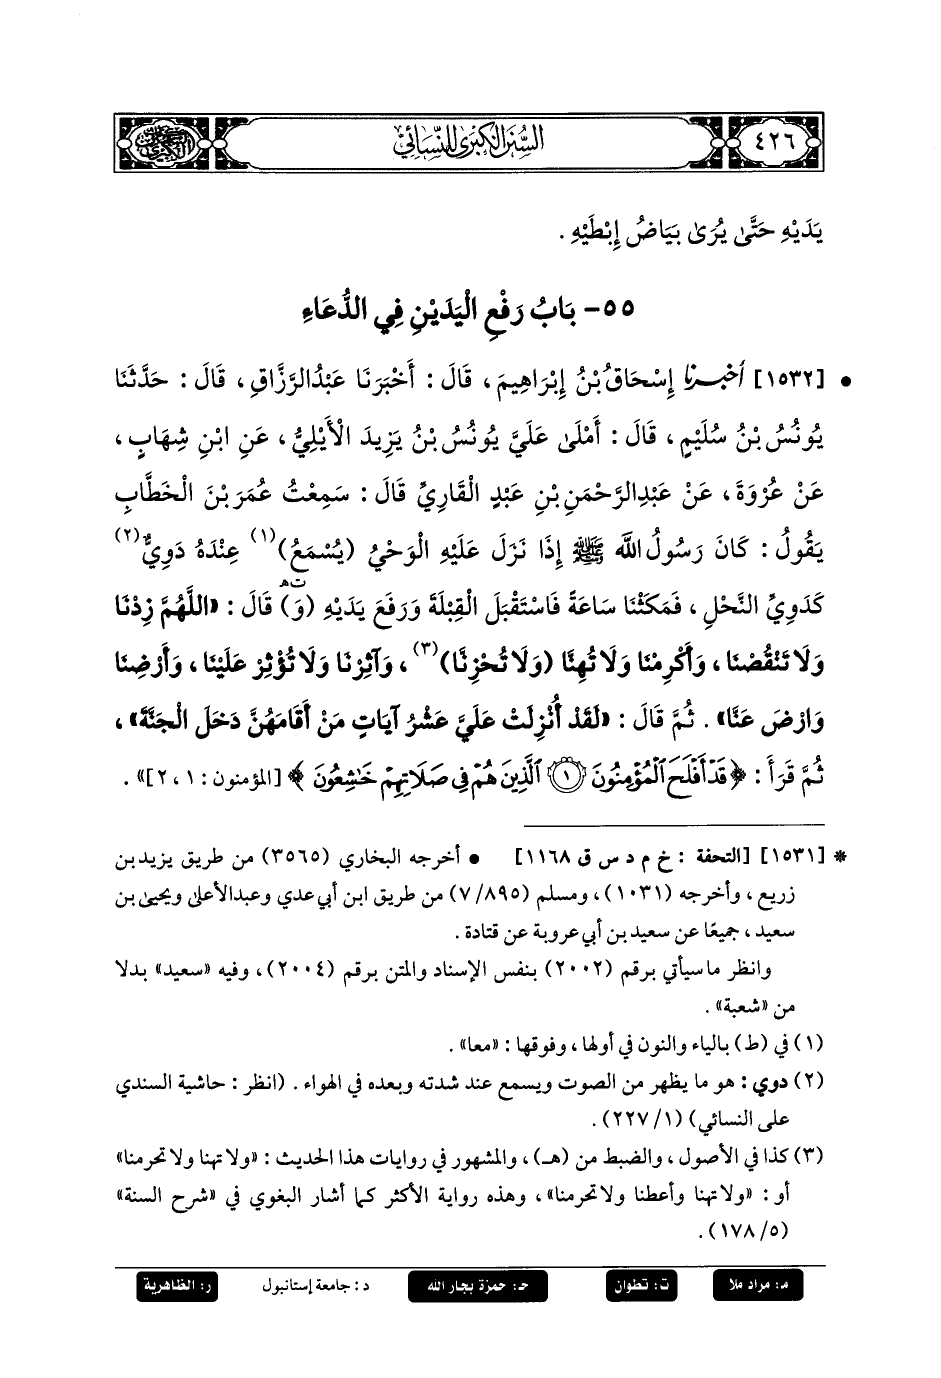 ٤٢٦
السنن الكبرى للنسائي
يَدَيْهِ حَتَّىٰ يُرَىٰ بَيَاضُ إِبْطَيْهِ .
٥٥- بَابُ رَفْعِ الْيَدَيْنِ فِي الدُّعَاءِ
• [١٥٣٢] أخبرنا إِسْحَاقُ بْنُ إِبْرَاهِيمَ ، قَالَ : أَخْبَرَنَا عَبْدُالرَّزَّاقِ ، قَالَ : حَدَّثَنَا
يُونُسُ بْنُ سُلَيْمٍ ، قَالَ : أَمْلَىٰ عَلَيَّ يُونُسُ بْنُ يَزِيدَ الْأَيْلِيُّ ، عَنِ ابْنِ شِهَابٍ ،
عَنْ عُرْوَةَ ، عَنْ عَبْدِالرَّحْمَنِ بْنِ عَبْدٍ الْقَارِيِّ قَالَ : سَمِعْتُ عُمَرَ بْنَ الْخَطَّابِ
يَقُولُ : كَانَ رَسُولُ اللَّه ﷺ إِذَا نَزَلَ عَلَيْهِ الْوَحْيُ (يُسْمَعُ)(١) عِنْدَهُ دَوِيٌّ(٢)
كَدَوِيِّ النَّحْلِ ، فَمَكَثْنَا سَاعَةً فَاسْتَقْبَلَ الْقِبْلَةَ وَرَفَعَ يَدَيْهِ (وَ) قَالَ : «اللَّهُمَّ زِدْنَا
وَلَا تَنْقُصْنَا ، وَأَكْرِمْنَا وَلَا تُهِنَّا (وَلَا تُخْزِنَّا)(٣) ، وَآثِرْنَا وَلَا تُؤْثِرْ عَلَيْنَا ، وَأَرْضِنَا
وَارْضَ عَنَّا» . ثُمَّ قَالَ : «لَقَدْ أُنْزِلَتْ عَلَيَّ عَشْرُ آيَاتٍ مَنْ أَقَامَهُنَّ دَخَلَ الْجَنَّةَ» ،
ثُمَّ قَرَأَ : ﴿قَدْ أَفْلَحَ ٱلْمُؤْمِنُونَ ١ ٱلَّذِينَ هُمْ فِى صَلَاتِهِمْ خَٰشِعُونَ﴾ [المؤمنون : ١ ، ٢]» .
* [١٥٣١] [التحفة : خ م د س ق ١١٦٨] • أخرجه البخاري (٣٥٦٥) من طريق يزيد بن
زريع ، وأخرجه (١٠٣١) ، ومسلم (٧/٨٩٥) من طريق ابن أبي عدي وعبدالأعلى ويحيى بن
سعيد ، جميعًا عن سعيد بن أبي عروبة عن قتادة .
وانظر ما سيأتي برقم (٢٠٠٢) بنفس الإسناد والمتن برقم (٢٠٠٤) ، وفيه «سعيد» بدلا
من «شعبة» .
(١) في (ط) بالياء والنون في أولها ، وفوقها : «معا» .
(٢) دوي : هو ما يظهر من الصوت ويسمع عند شدته وبعده في الهواء . (انظر : حاشية السندي
على النسائي) (١/ ٢٢٧) .
(٣) كذا في الأصول ، والضبط من (هـ) ، والمشهور في روايات هذا الحديث : «ولا تهنا ولا تحرمنا»
أو : «ولا تهنا وأعطنا ولا تحرمنا» ، وهذه رواية الأكثر كما أشار البغوي في «شرح السنة»
(٥/ ١٧٨) .
م: مراد ملا ت: تطوان حـ: حمزة بجار الله د: جامعة إستانبول ر: الظاهرية